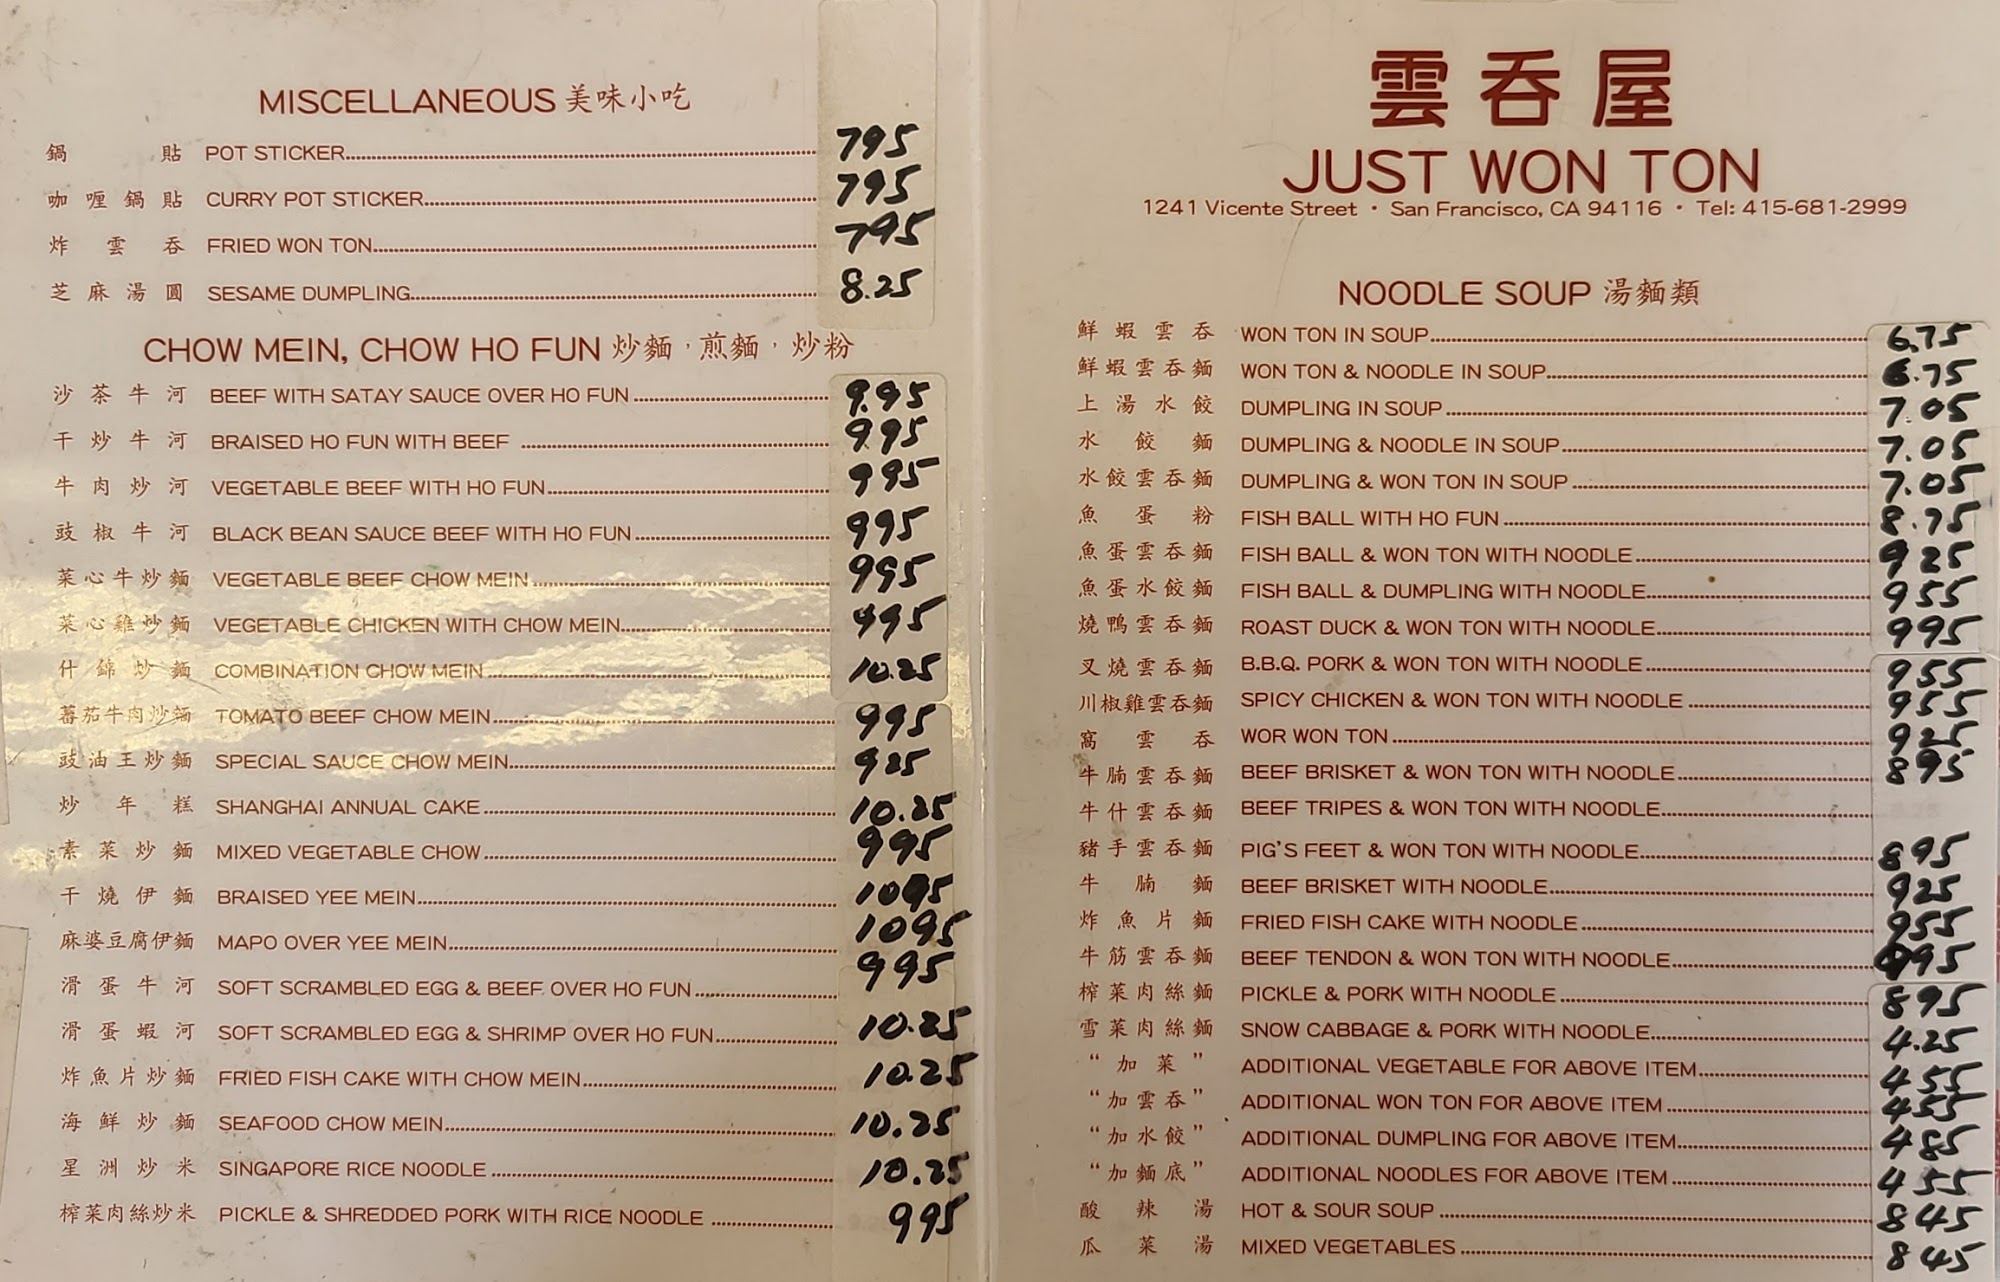 MISCELLANEOUS 美味小吃
鍋貼 POT STICKER 795
咖喱鍋貼 CURRY POT STICKER 795
炸雲吞 FRIED WON TON 795
芝麻湯圓 SESAME DUMPLING 8.25
CHOW MEIN, CHOW HO FUN 炒麵，煎麵，炒粉
沙茶牛河 BEEF WITH SATAY SAUCE OVER HO FUN 9.95
干炒牛河 BRAISED HO FUN WITH BEEF 9.95
牛肉炒河 VEGETABLE BEEF WITH HO FUN 995
豉椒牛河 BLACK BEAN SAUCE BEEF WITH HO FUN 995
菜心牛炒麵 VEGETABLE BEEF CHOW MEIN 995
菜心雞炒麵 VEGETABLE CHICKEN WITH CHOW MEIN 995
什錦炒麵 COMBINATION CHOW MEIN 10.25
蕃茄牛肉炒麵 TOMATO BEEF CHOW MEIN 995
豉油王炒麵 SPECIAL SAUCE CHOW MEIN 925
炒年糕 SHANGHAI ANNUAL CAKE 10.25
素菜炒麵 MIXED VEGETABLE CHOW 995
干燒伊麵 BRAISED YEE MEIN 1095
麻婆豆腐伊麵 MAPO OVER YEE MEIN 1095
滑蛋牛河 SOFT SCRAMBLED EGG & BEEF OVER HO FUN 995
滑蛋蝦河 SOFT SCRAMBLED EGG & SHRIMP OVER HO FUN 10.25
炸魚片炒麵 FRIED FISH CAKE WITH CHOW MEIN 10.25
海鮮炒麵 SEAFOOD CHOW MEIN 10.25
星洲炒米 SINGAPORE RICE NOODLE 10.25
榨菜肉絲炒米 PICKLE & SHREDDED PORK WITH RICE NOODLE 995
雲吞屋
JUST WON TON
1241 Vicente Street • San Francisco, CA 94116 • Tel: 415-681-2999
NOODLE SOUP 湯麵類
鮮蝦雲吞 WON TON IN SOUP 6.75
鮮蝦雲吞麵 WON TON & NOODLE IN SOUP 6.75
上湯水餃 DUMPLING IN SOUP 7.05
水餃麵 DUMPLING & NOODLE IN SOUP 7.05
水餃雲吞麵 DUMPLING & WON TON IN SOUP 7.05
魚蛋粉 FISH BALL WITH HO FUN 8.75
魚蛋雲吞麵 FISH BALL & WON TON WITH NOODLE 925
魚蛋水餃麵 FISH BALL & DUMPLING WITH NOODLE 955
燒鴨雲吞麵 ROAST DUCK & WON TON WITH NOODLE 995
叉燒雲吞麵 B.B.Q. PORK & WON TON WITH NOODLE 955
川椒雞雲吞麵 SPICY CHICKEN & WON TON WITH NOODLE 955
窩雲吞 WOR WON TON 925
牛腩雲吞麵 BEEF BRISKET & WON TON WITH NOODLE 895
牛什雲吞麵 BEEF TRIPES & WON TON WITH NOODLE
豬手雲吞麵 PIG'S FEET & WON TON WITH NOODLE 895
牛腩麵 BEEF BRISKET WITH NOODLE 925
炸魚片麵 FRIED FISH CAKE WITH NOODLE 955
牛筋雲吞麵 BEEF TENDON & WON TON WITH NOODLE
榨菜肉絲麵 PICKLE & PORK WITH NOODLE 895
雪菜肉絲麵 SNOW CABBAGE & PORK WITH NOODLE 4.25
“加菜” ADDITIONAL VEGETABLE FOR ABOVE ITEM 455
“加雲吞” ADDITIONAL WON TON FOR ABOVE ITEM 455
“加水餃” ADDITIONAL DUMPLING FOR ABOVE ITEM 485
“加麵底” ADDITIONAL NOODLES FOR ABOVE ITEM 455
酸辣湯 HOT & SOUR SOUP 845
瓜菜湯 MIXED VEGETABLES 845